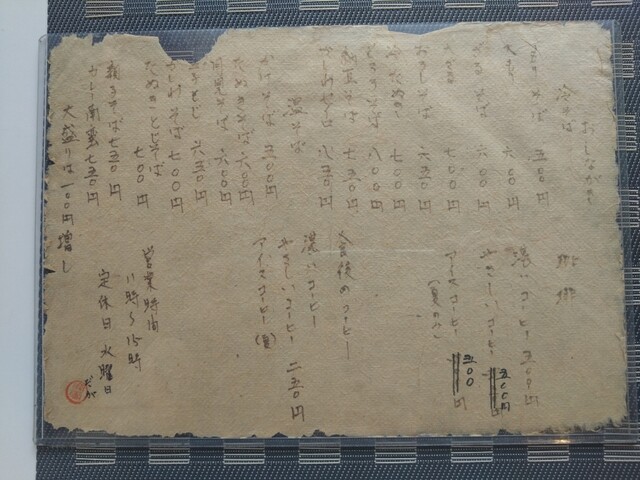 おしながき
冷そば
そば 五〇〇円
六〇〇円
ざるそば 六〇〇円
七〇〇円
おろしそば 六五〇円
冷たぬき 七〇〇円
とろろそば 八〇〇円
納豆そば 七五〇円
八五〇円
温そば
かけそば 五〇〇円
たぬきそば 六〇〇円
そば 六〇〇円
六五〇円
そば 七〇〇円
たぬきとじそば
七〇〇円
七五〇円
カレー南蛮 七五〇円
大盛りは一〇〇円増し
珈琲
濃いコーヒー 五〇〇円
やさしいコーヒー 五〇〇円
アイスコーヒー 五〇〇円
(夏のみ)
食後のコーヒー
濃いコーヒー
やさしいコーヒー 二五〇円
アイスコーヒー(夏)
営業時間
11時~15時
定休日 火曜日